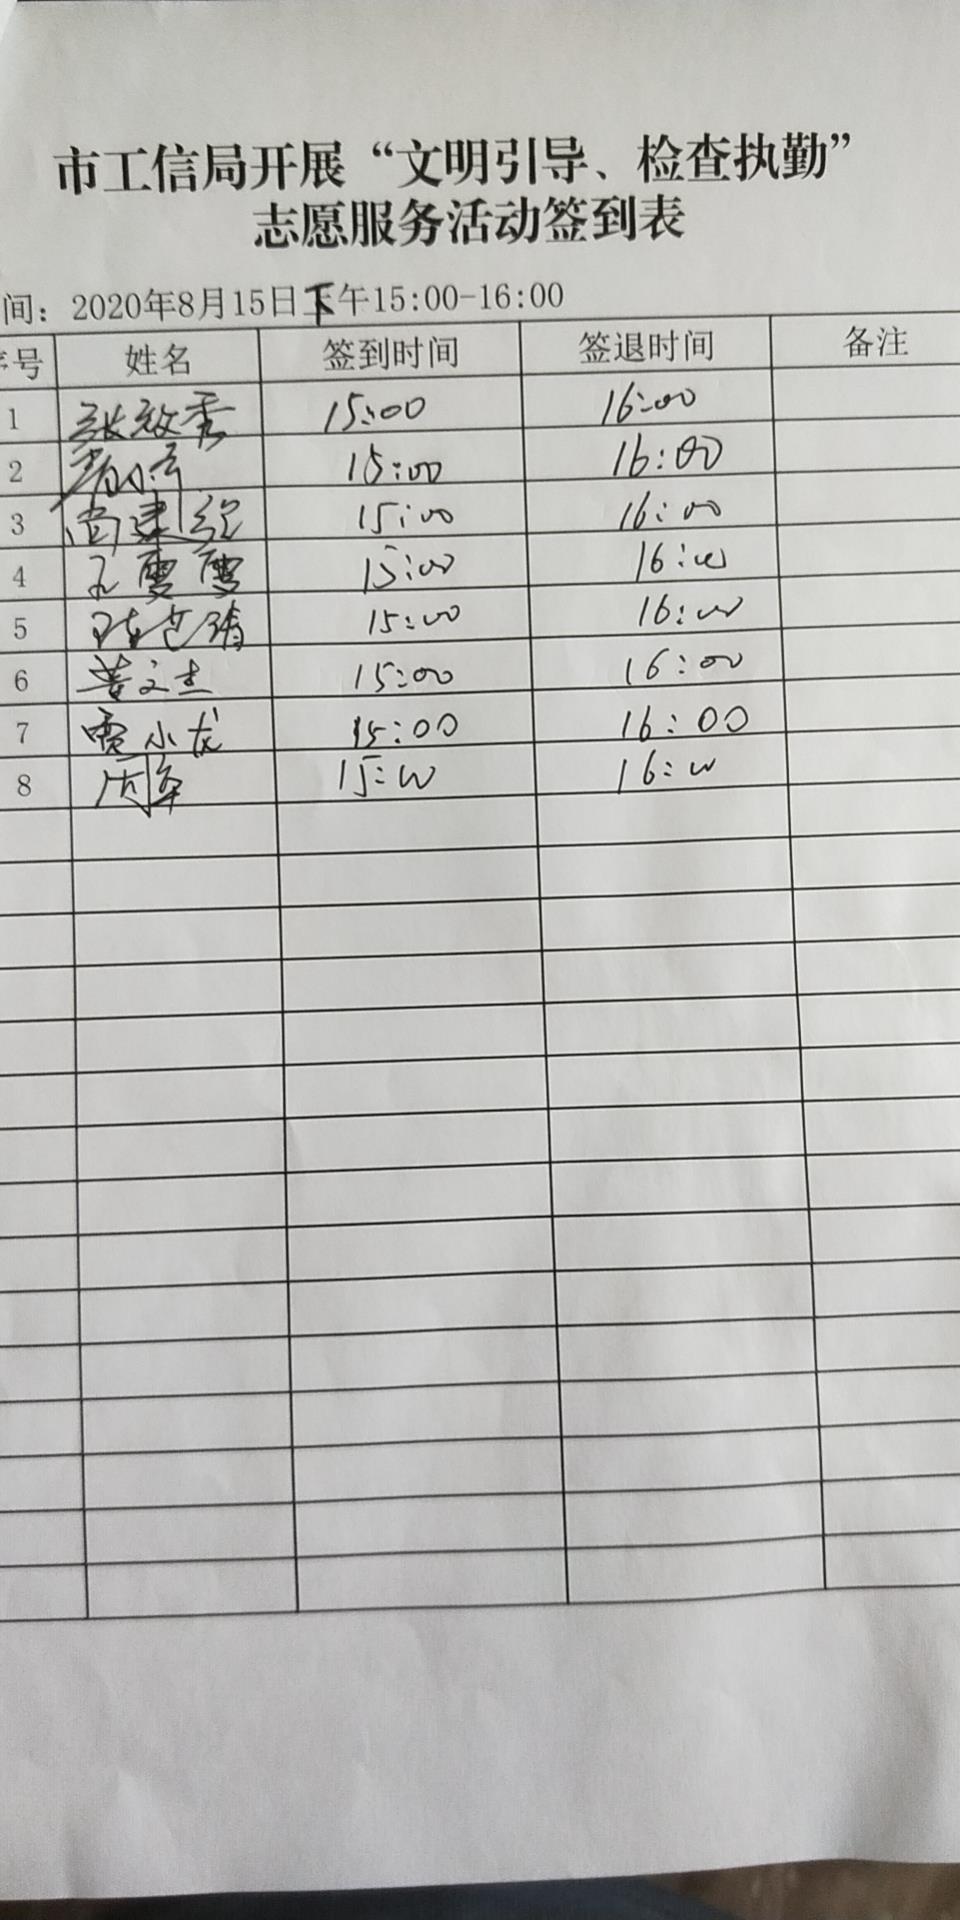 市工信局开展“文明引导、检查执勤”
志愿服务活动签到表
间：2020年8月15日下午15:00-16:00
序号 姓名 签到时间 签退时间 备注
1 张效秀 15:00 16:00
2 15:00 16:00
3 尚建红 15:00 16:00
4 王雯雯 15:00 16:00
5 15:00 16:00
6 姜文杰 15:00 16:00
7 贾小龙 15:00 16:00
8 15:00 16:00